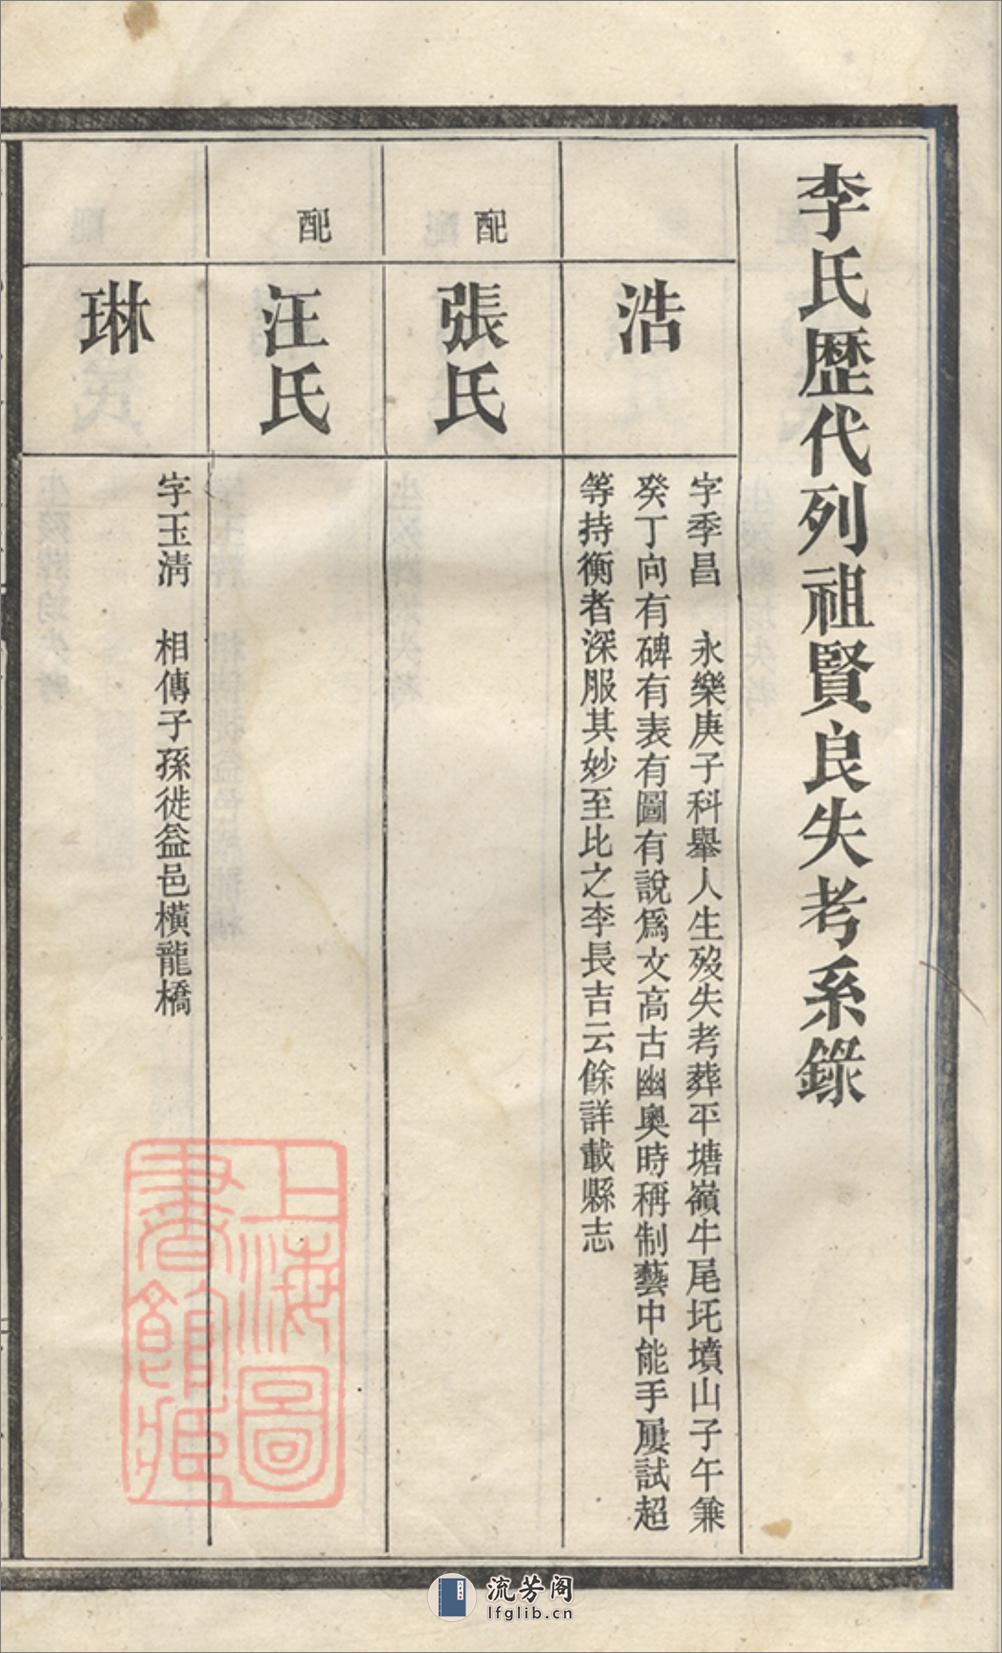 李氏歷代列祖賢良失考系錄
浩
字季昌　永樂庚子科舉人生歿失考葬平塘嶺牛尾坉墳山子午兼
癸丁向有碑有表有圖有說爲文高古幽奧時稱制藝中能手屢試超
等持衡者深服其妙至比之李長吉云餘詳載縣志
配
張氏
配
汪氏
琳
字玉淸　相傳子孫徙益邑橫龍橋
上海圖
書館藏
流芳阁
lfglib.cn